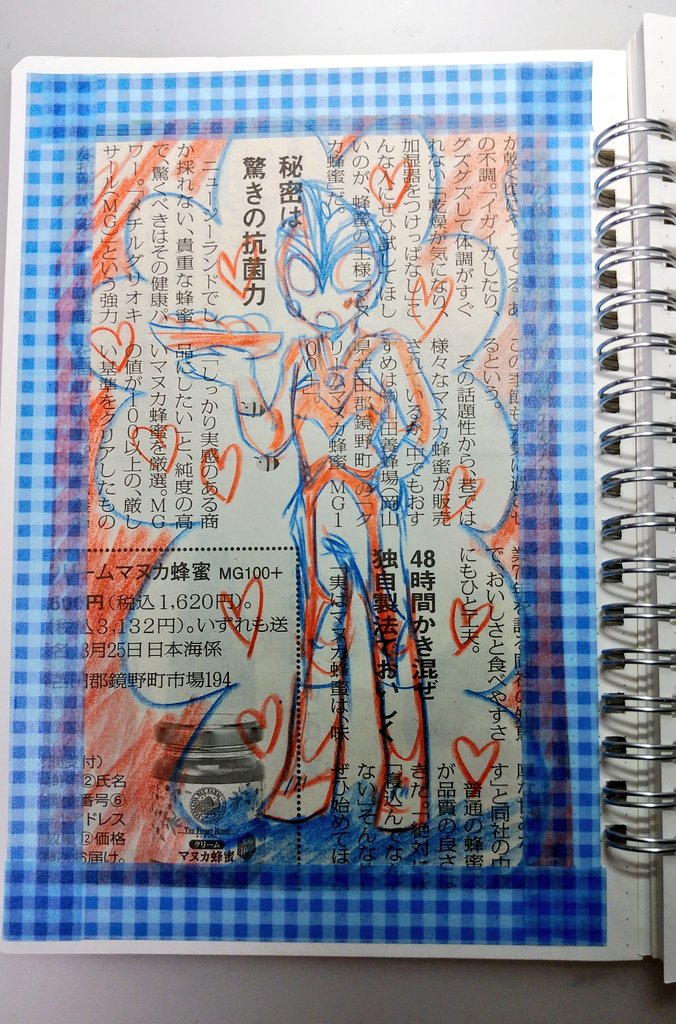 が乾く日にやってくる、あ
の不調。「イガイガしたり、
グズグズして体調がすぐ
れない」「乾燥が気になり、
加湿器をつけっぱなし」こ
んな人にぜひ試してほし
いのが、蜂蜜の王様「マヌ
カ蜂蜜」だ。
秘密は
驚きの抗菌力
ニュージーランドでし
か採れない、貴重な蜂蜜
で、驚くべきはその健康パ
ワー。「メチルグリオキ
サール（MG）」という強力
るという。
その話題性から、巷では
様々なマヌカ蜂蜜が販売
されているが、中でもおす
すめは㈱山田養蜂場（岡山
県苫田郡鏡野町）の「ク
リームマヌカ蜂蜜 MG1
00+」。
「しっかり実感のある商
品にしたい」と、純度の高
いマヌカ蜂蜜を厳選。MG
の値が100以上の、厳し
い基準をクリアしたもの
で、おいしさと食べやすさ
にもひと工夫。
48時間かき混ぜ
独自製法でおいしく
「実はマヌカ蜂蜜は、味
す」と同社の中
普通の蜂蜜
が品質の良さは
きた。「絶対には
ない」そんな
ぜひ始めては
クリームマヌカ蜂蜜 MG100+
円（税込1,620円）。
込3,132円）。いずれも送
3月25日 日本海係
郡鏡野町市場194
付）
②氏名
番号⑥
ドレス
②価格
お届け。
The Honey House
クリーム
マヌカ蜂蜜